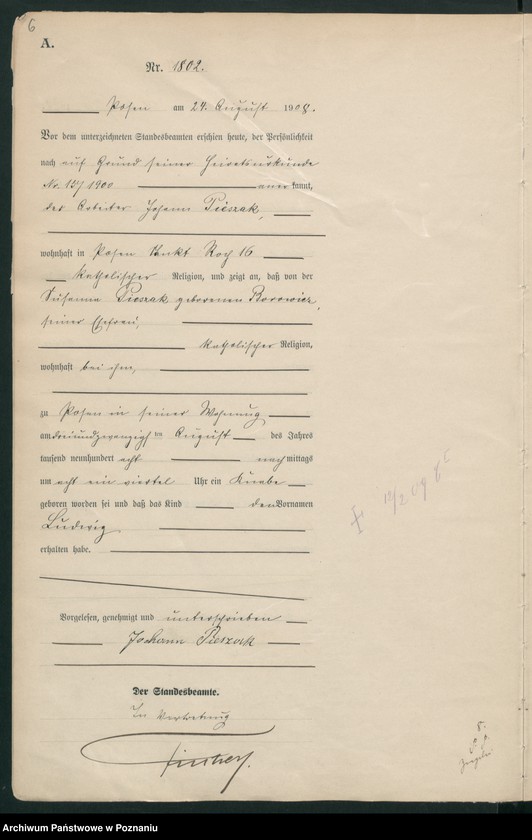 6
A.
Nr. 1802.
Posen am 24. August 1908.
Vor dem unterzeichneten Standesbeamten erschien heute, der Persönlichkeit
nach auf Grund seiner Heiratsurkunde
No. 127/1900 anerkannt,
der Arbeiter Johann Pieszak,
wohnhaft in Posen Sankt Roch 16
katholischer Religion, und zeigt an, daß von der
Susanna Pieszak geborenen Borowicz,
seiner Ehefrau,
katholischer Religion,
wohnhaft bei ihm,
zu Posen in seiner Wohnung
am dreiundzwanzigsten August des Jahres
tausend neunhundert acht nachmittags
um acht ein viertel Uhr ein Knabe
geboren worden sei und daß das Kind den Vornamen
Ludwig
erhalten habe.
Vorgelesen, genehmigt und unterschrieben
Johann Pieszak
Der Standesbeamte.
In Vertretung
Archiwum Państwowe w Poznaniu